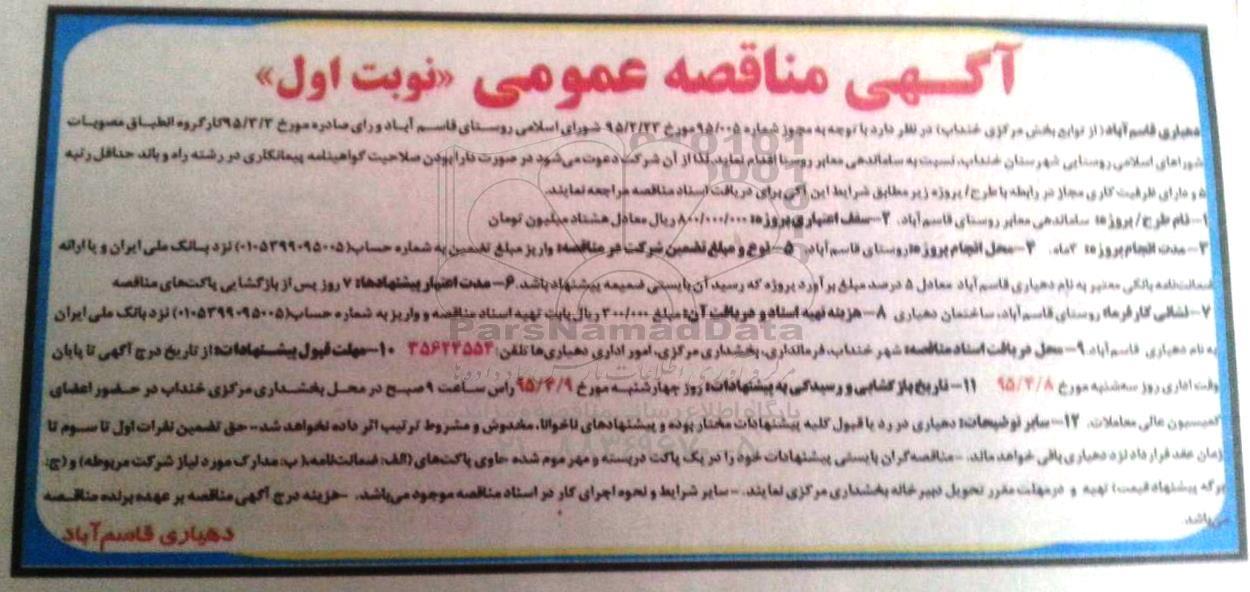 آگهی مناقصه عمومی «نوبت اول»
دهیاری قاسم آباد (از توابع بخش مرکزی خنداب) در نظر دارد با توجه به مجوز شماره ۹۵/۰۰۵ مورخ ۹۵/۲/۲۳ شورای اسلامی روستای قاسم آباد و رای صادره مورخ ۹۵/۳/۳ کارگروه انطباق مصوبات
شوراهای اسلامی روستایی شهرستان خنداب، نسبت به ساماندهی معابر روستا اقدام نماید. لذا از آن شرکت دعوت می‌شود در صورت دارا بودن صلاحیت گواهینامه پیمانکاری در رشته راه و باند حداقل رتبه
۵ و دارای ظرفیت کاری مجاز در رابطه با طرح/ پروژه زیر مطابق شرایط این آگی برای دریافت اسناد مناقصه مراجعه نمایند.
۱-نام طرح/ پروژه: ساماندهی معابر روستای قاسم‌آباد. ۲-سقف اعتباری پروژه: ۸۰۰/۰۰۰/۰۰۰ ریال معادل هشتاد میلیون تومان
۳-مدت انجام پروژه: ۲ماه. ۴-محل انجام پروژه: روستای قاسم‌آباد ۵-نوع و مبلغ تضمین شرکت در مناقصه: واریز مبلغ تضمین به شماره حساب (۰۱۰۵۳۹۹۰۹۵۰۰۵) نزد بانک ملی ایران و یا ارائه
ضمانت‌نامه بانکی معتبر به نام دهیاری قاسم‌آباد معادل ۵ درصد مبلغ برآورد پروژه که رسید آن بایستی ضمیمه پیشنهاد باشد. ۶-مدت اعتبار پیشنهادها: ۷ روز پس از بازگشایی پاکت‌های مناقصه
۷-نشانی کارفرما: روستای قاسم‌آباد، ساختمان دهیاری ۸-هزینه تهیه اسناد و دریافت آن: مبلغ ۳۰۰/۰۰۰ ریال بابت تهیه اسناد مناقصه و واریز به شماره حساب (۰۱۰۵۳۹۹۰۹۵۰۰۵) نزد بانک ملی ایران
به نام دهیاری قاسم‌آباد. ۹-محل دریافت اسناد مناقصه: شهر خنداب، فرمانداری، بخشداری مرکزی، امور اداری دهیاری‌ها تلفن: ۳۵۶۲۲۵۵۳ ۱۰-مهلت قبول پیشنهادات: از تاریخ درج آگهی تا پایان
وقت اداری روز سه‌شنبه مورخ ۹۵/۴/۸ ۱۱-تاریخ بازگشایی و رسیدگی به پیشنهادات: روز چهارشنبه مورخ ۹۵/۴/۹ راس ساعت ۹ صبح در محل بخشداری مرکزی خنداب در حضور اعضای
کمیسیون عالی معاملات. ۱۲-سایر توضیحات: دهیاری در رد یا قبول کلیه پیشنهادات مختار بوده و پیشنهادهای ناخوانا، مخدوش و مشروط ترتیب اثر داده نخواهد شد-حق تضمین نفرات اول تا سوم تا
زمان عقد قرارداد نزد دهیاری باقی خواهد ماند. -مناقصه‌گران بایستی پیشنهادات خود را در یک پاکت دربسته و مهر موم شده حاوی پاکت‌های (الف: ضمانت‌نامه، ب: مدارک مورد نیاز شرکت مربوطه) و (ج:
برگه پیشنهاد قیمت) تهیه و در مهلت مقرر تحویل دبیرخانه بخشداری مرکزی نمایند. -سایر شرایط و نحوه اجرای کار در اسناد مناقصه موجود می‌باشد. -هزینه درج آگهی مناقصه بر عهده برنده مناقصه
می‌باشد.
دهیاری قاسم‌آباد
ParsNamadData
پایگاه اطلاع رسانی مناقصه و مزایده